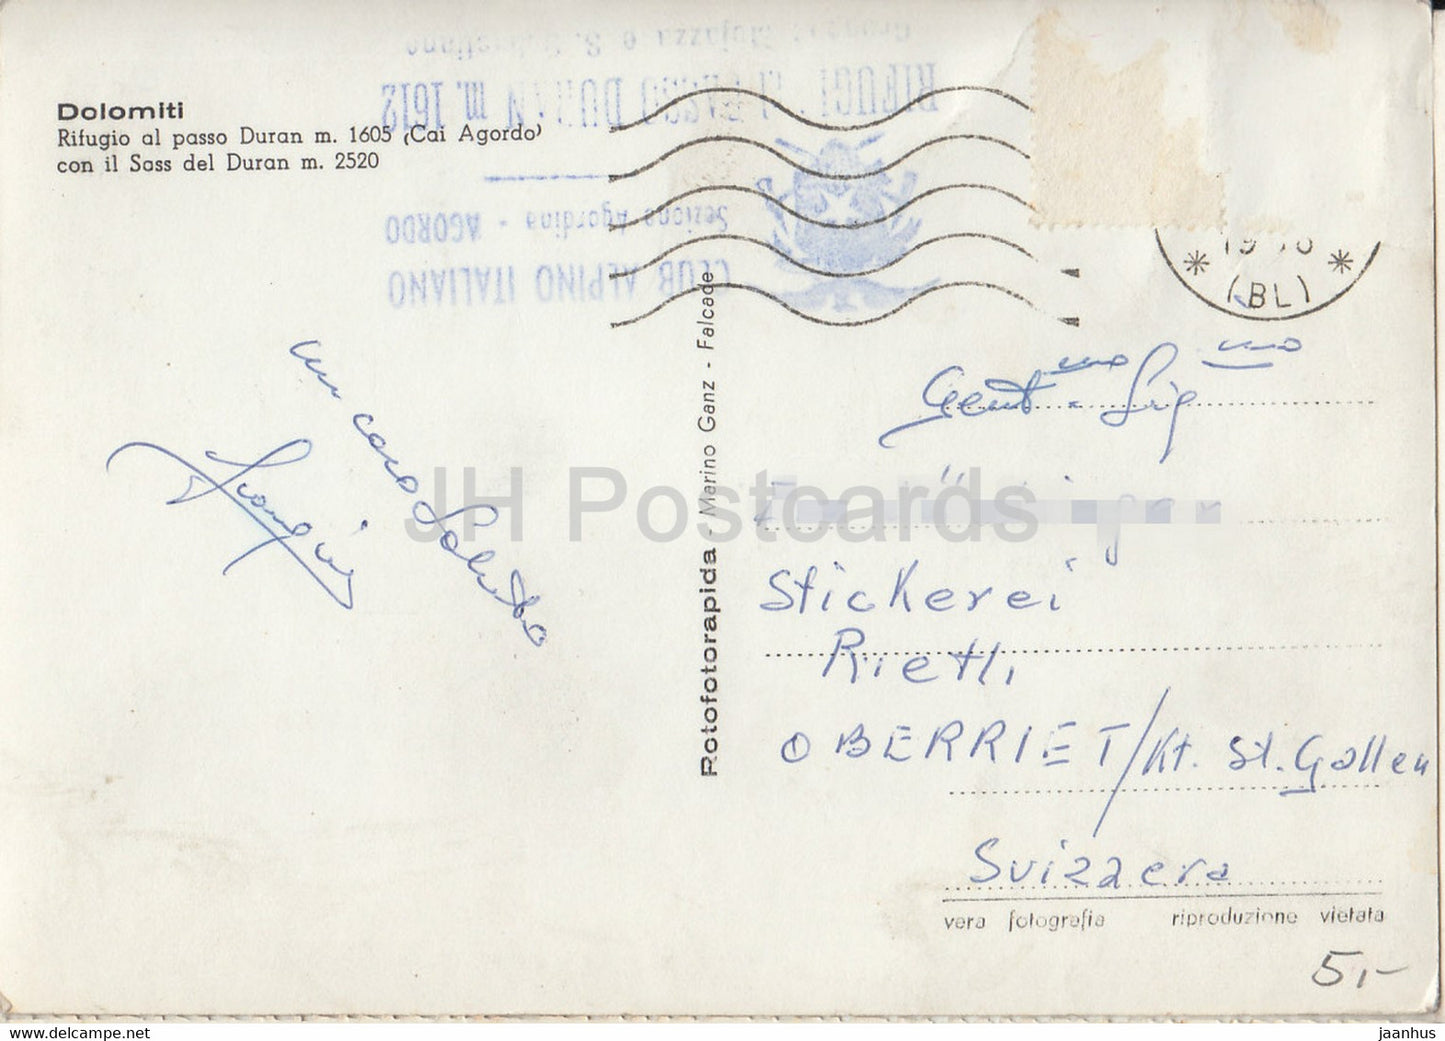 Dolomiti
Rifugio al passo Duran m. 1605 (Cai Agordo)
con il Sass del Duran m. 2520
RIFUGIO PASSO DURAN m. 1612
Sezione Agordina - AGORDO
CLUB ALPINO ITALIANO
(BL)
un caro Saluto
Rotofotorapida - Marino Ganz - Falcade
Gent.mo Sig.mo
Stickerei
Rietli
OBERRIET/Kt. St. Gallen
Svizzera
vera fotografia riproduzione vietata
5,-
JH Postcards
eBid.net
jaanhus